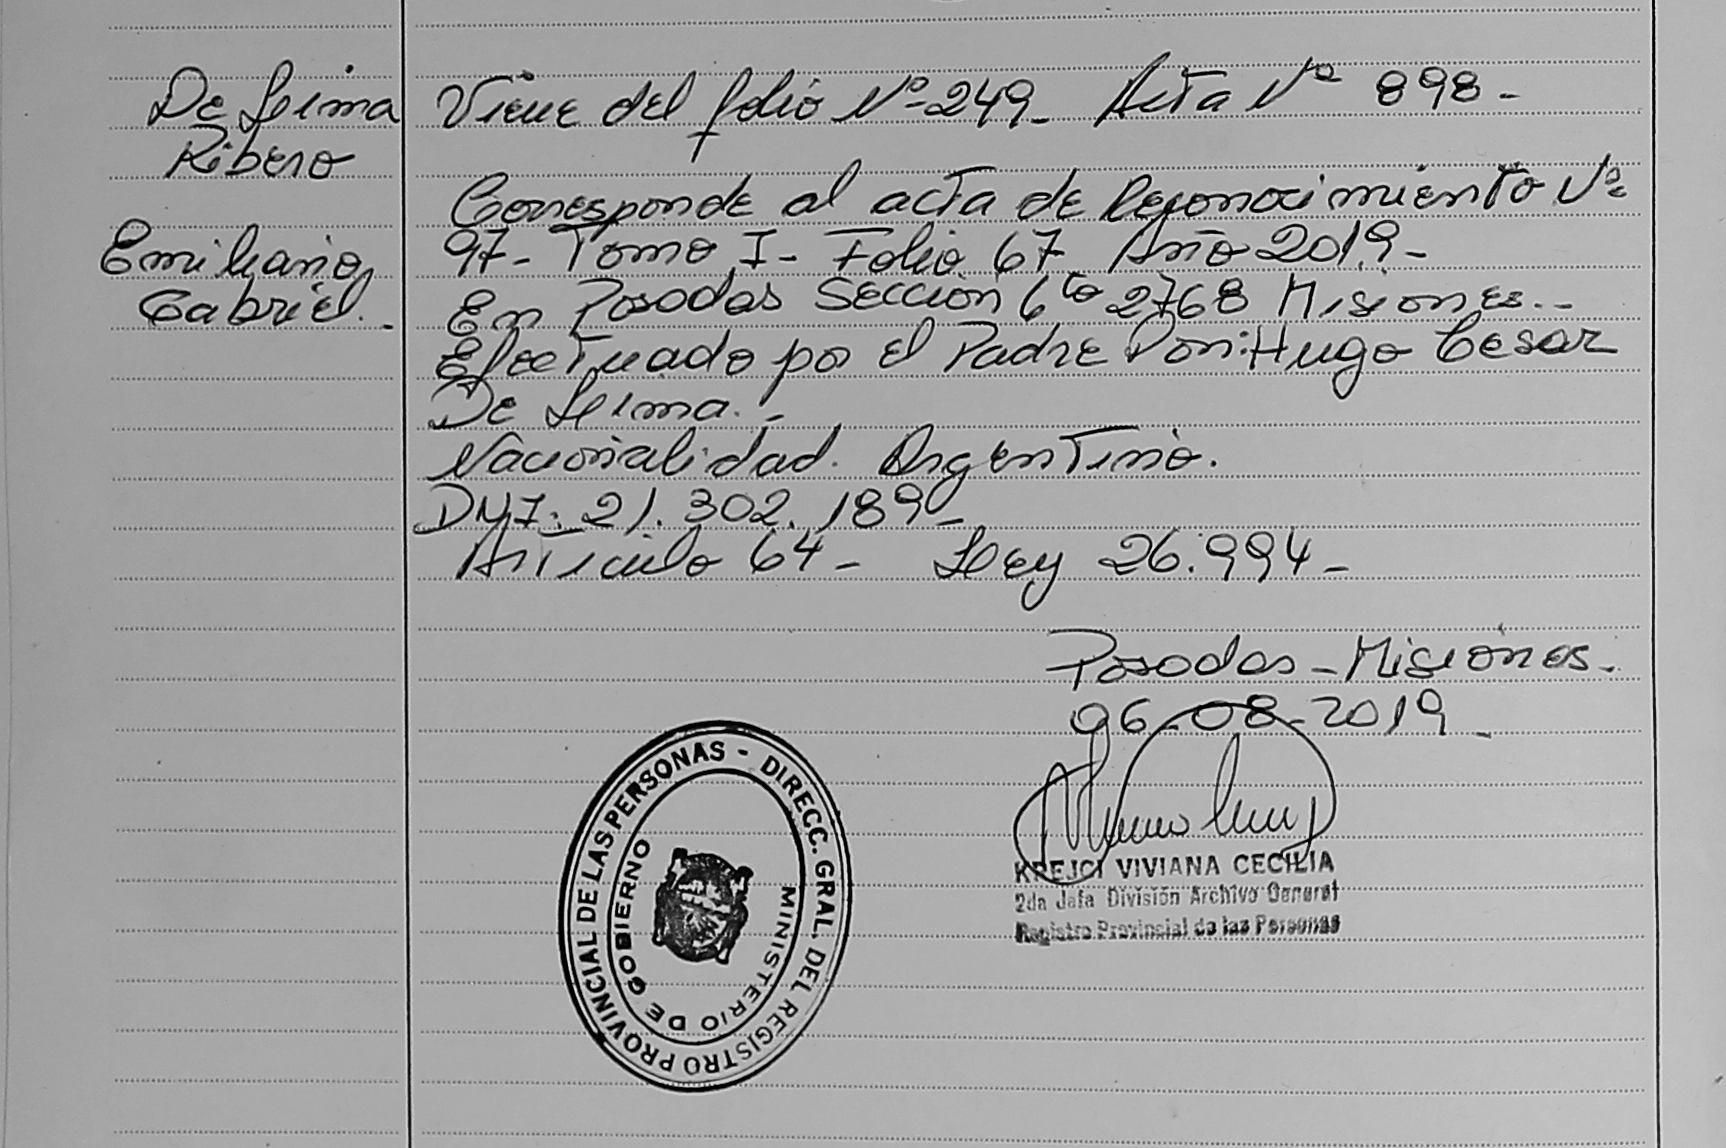 De Lima
Ribero
Emiliano
Gabriel.-
Viene del folio Nº 249- Acta Nº 898-
Corresponde al acta de Reconocimiento Nº
97- Tomo I- Folio 67 Año 2019-
En Posadas Sección 6ta 2768 Misiones.-
Efectuado por el Padre Don: Hugo Cesar
De Lima.-
Nacionalidad. Argentino.
DNI: 21.302.189-
Articulo 64- Ley 26.994-
Posadas-Misiones.
06-08-2019-
KREJCI VIVIANA CECILIA
2da Jefa División Archivo General
Registro Provincial de las Personas
DIRECC. GRAL. DEL REGISTRO PROVINCIAL DE LAS PERSONAS -
MINISTERIO DE GOBIERNO